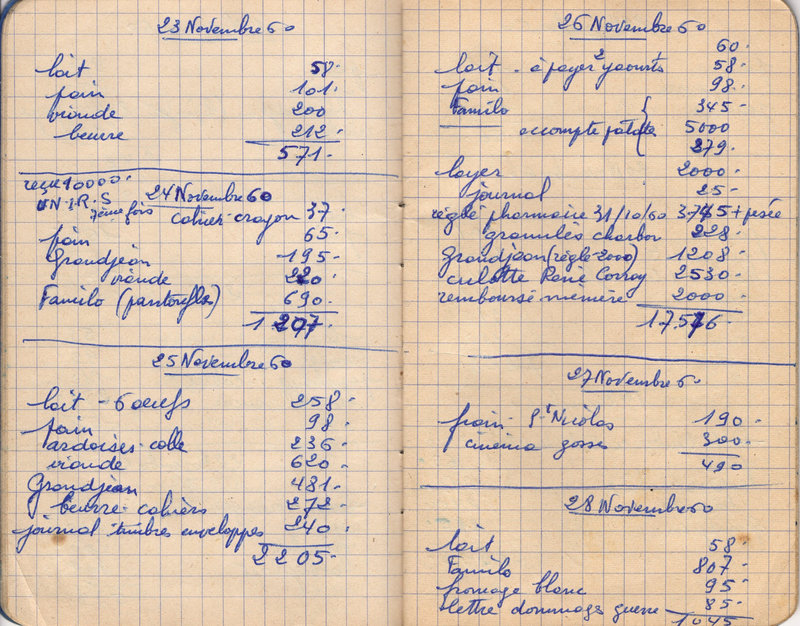 23 Novembre 60
lait 58-
pain 101-
viande 200
beurre 212-
571-
reçu 10000-
U.N.I.R.S 24 Novembre 60
7ème fois cahier-crayon 37-
pain 65-
Grandjean 195-
viande 220
Familo (pantoufles) 690-
1207-
25 Novembre 60
lait - 6 oeufs 258-
pain 98-
ardoises-colle 236-
viande 620-
Grandjean 481-
beurre-cahiers 272-
journal timbres enveloppes 240
2205-
26 Novembre 60
60-
lait - à payer 2 yaourts 58-
pain 98-
Familo 345-
accompte patate 5000
279-
loyer 2000-
journal 25-
réglé pharmacie 31/10/60 3745 + pesée
granulés charbon 228-
Grandjean (réglé 2000) 1208-
culotte René Conroy 2530-
remboursé mémère 2000-
17576
27 Novembre 60
pain - St Nicolas 190-
cinéma gosses 300-
490
28 Novembre 60
lait 58-
Familo 807-
fromage blanc 95-
lettre dommages guerre 85-
1045